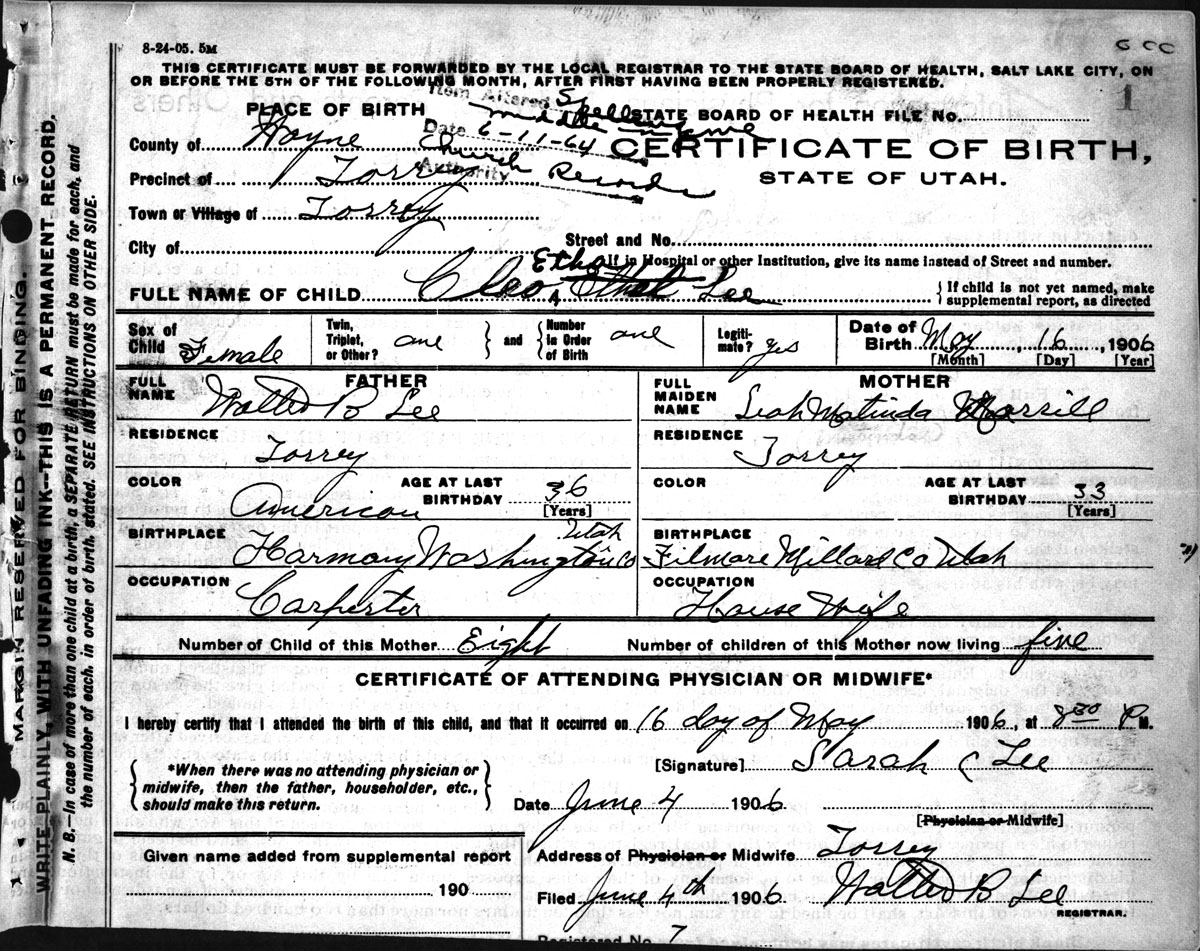 8-24-05. 5M
G CC
THIS CERTIFICATE MUST BE FORWARDED BY THE LOCAL REGISTRAR TO THE STATE BOARD OF HEALTH, SALT LAKE CITY, ON
OR BEFORE THE 5TH OF THE FOLLOWING MONTH, AFTER FIRST HAVING BEEN PROPERLY REGISTERED.
1
Item Altered Spelling
middle name
Date 6-11-64
Authority Church Records
PLACE OF BIRTH
STATE BOARD OF HEALTH FILE No.
County of Wayne
CERTIFICATE OF BIRTH,
Precinct of Torrey
STATE OF UTAH.
Town or Village of Torrey
City of
Street and No.
Etha
If in Hospital or other Institution, give its name instead of Street and number.
FULL NAME OF CHILD Cleo Ethel Lee
If child is not yet named, make
supplemental report, as directed
Sex of Child Female
Twin, Triplet, or Other? one
and
Number in Order of Birth one
Legitimate? yes
Date of Birth May, 16, 1906
[Month] [Day] [Year]
FATHER
MOTHER
FULL NAME Walter B Lee
FULL MAIDEN NAME Leah Matinda Morrill
RESIDENCE Torrey
RESIDENCE Torrey
COLOR American
AGE AT LAST BIRTHDAY 36
[Years]
COLOR
AGE AT LAST BIRTHDAY 33
[Years]
BIRTHPLACE Harmony Washington Co Utah
BIRTHPLACE Filmore Millard Co Utah
OCCUPATION Carpester
OCCUPATION House Wife
Number of Child of this Mother Eight
Number of children of this Mother now living five
CERTIFICATE OF ATTENDING PHYSICIAN OR MIDWIFE*
I hereby certify that I attended the birth of this child, and that it occurred on 16 day of May 1906, at 8 30 P M.
*When there was no attending physician or
midwife, then the father, householder, etc.,
should make this return.
[Signature] Sarah C Lee
Date June 4 1906
[Physician or Midwife]
Given name added from supplemental report
190
Address of Physician or Midwife Torrey
Filed June 4th 1906 Walter B Lee
REGISTRAR.
Registered No. 7
MARGIN RESERVED FOR BINDING.
WRITE PLAINLY, WITH UNFADING INK—THIS IS A PERMANENT RECORD.
N. B.—In case of more than one child at a birth, a SEPARATE RETURN must be made for each, and
the number of each, in order of birth, stated. SEE INSTRUCTIONS ON OTHER SIDE.